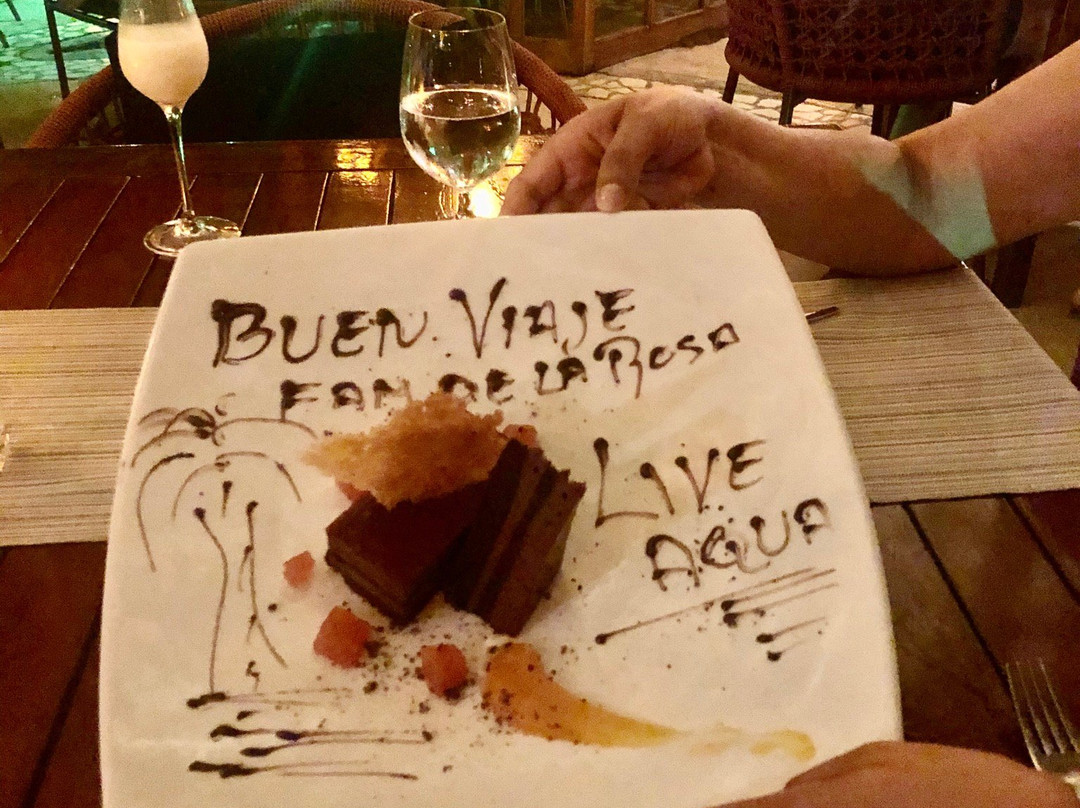 BUEN VIAJE
FAM DE LA ROSA
LIVE
AQUA